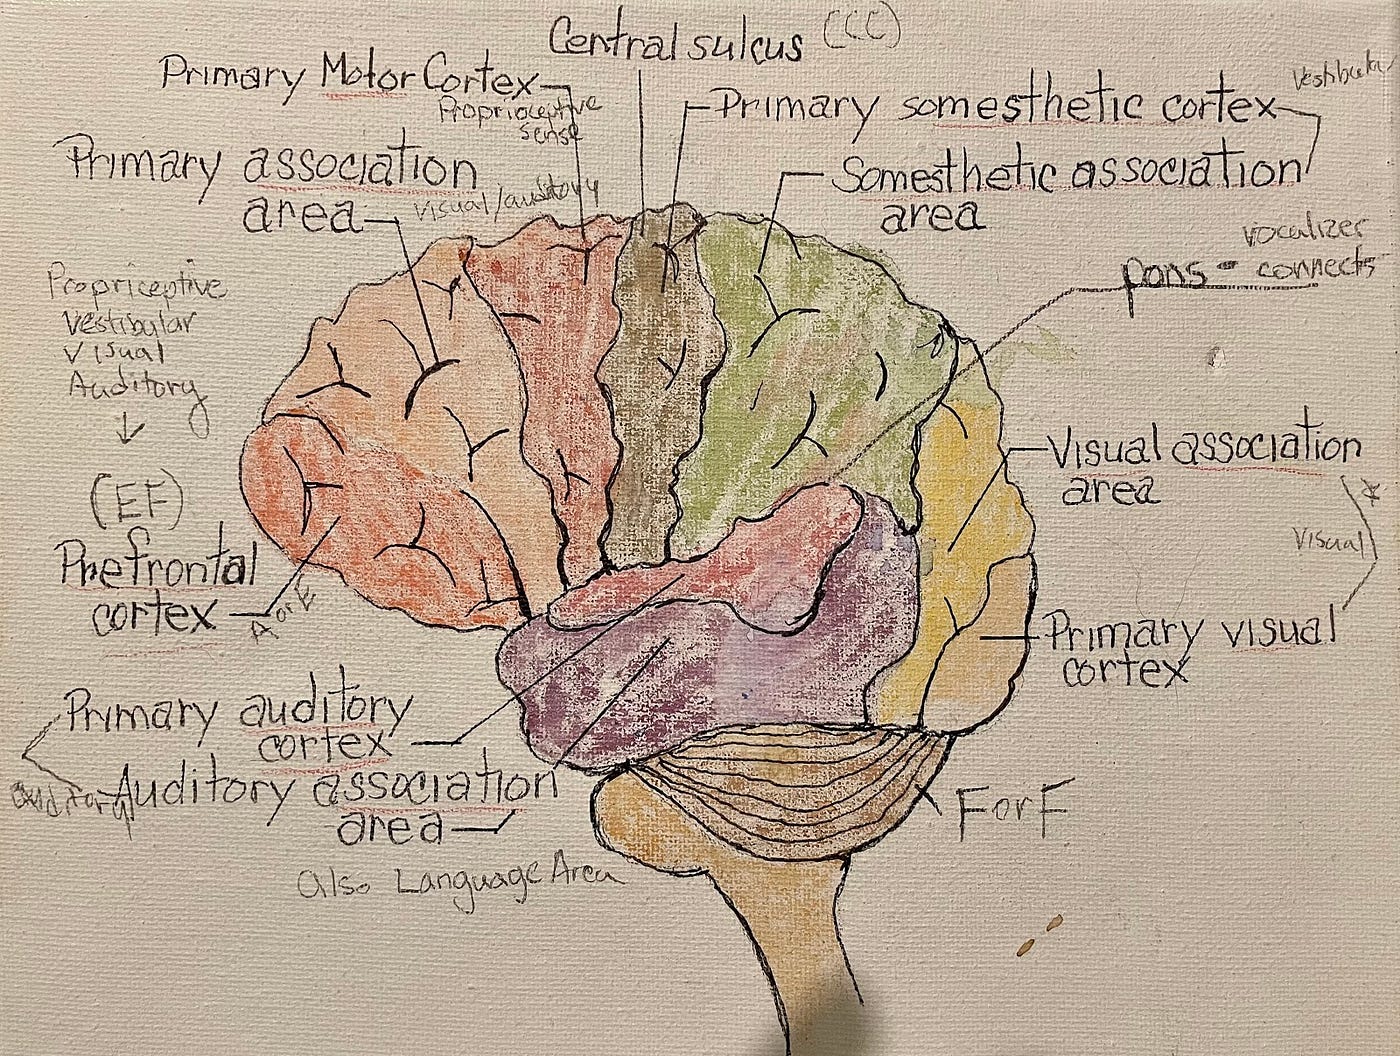 Central sulcus (CCC)
Primary Motor Cortex
Proprioceptive
sense
Primary somesthetic cortex
Vestibular
Primary association
area
Visual/auditory
Somesthetic association
area
vocalizer
pons - connects
Propriceptive
Vestibular
Visual
Auditory
(EF)
Prefrontal
cortex
A or E
Visual association
area
Visual
Primary visual
cortex
Primary auditory
cortex
Auditory association
area
also Language Area
F or F